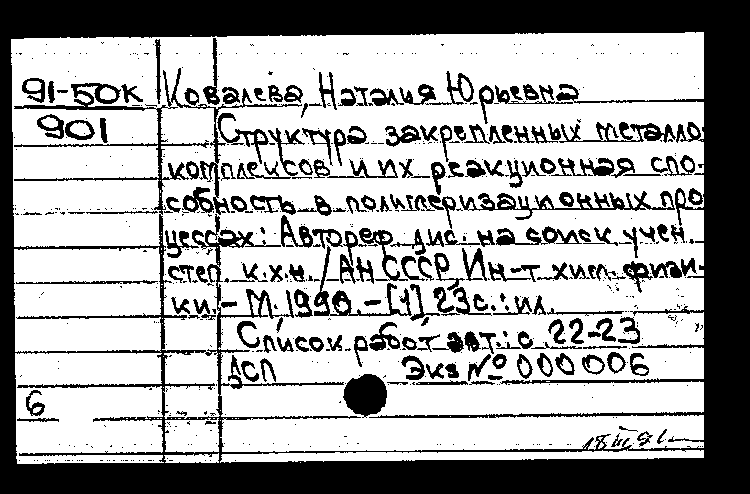 91-50к Ковалева, Наталия Юрьевна
901 Структура закрепленных металло-
комплексов и их реакционная спо-
собность в полимеризационных про-
цессах: Автореф. дис. на соиск. учен.
степ. к.х.н. / АН СССР, Ин-т хим. физи-
ки. - М. 1990. - [1] 23с.: ил.
Список работ авт.: с. 22-23
ДСП Экз № 000006
6
18 III 91